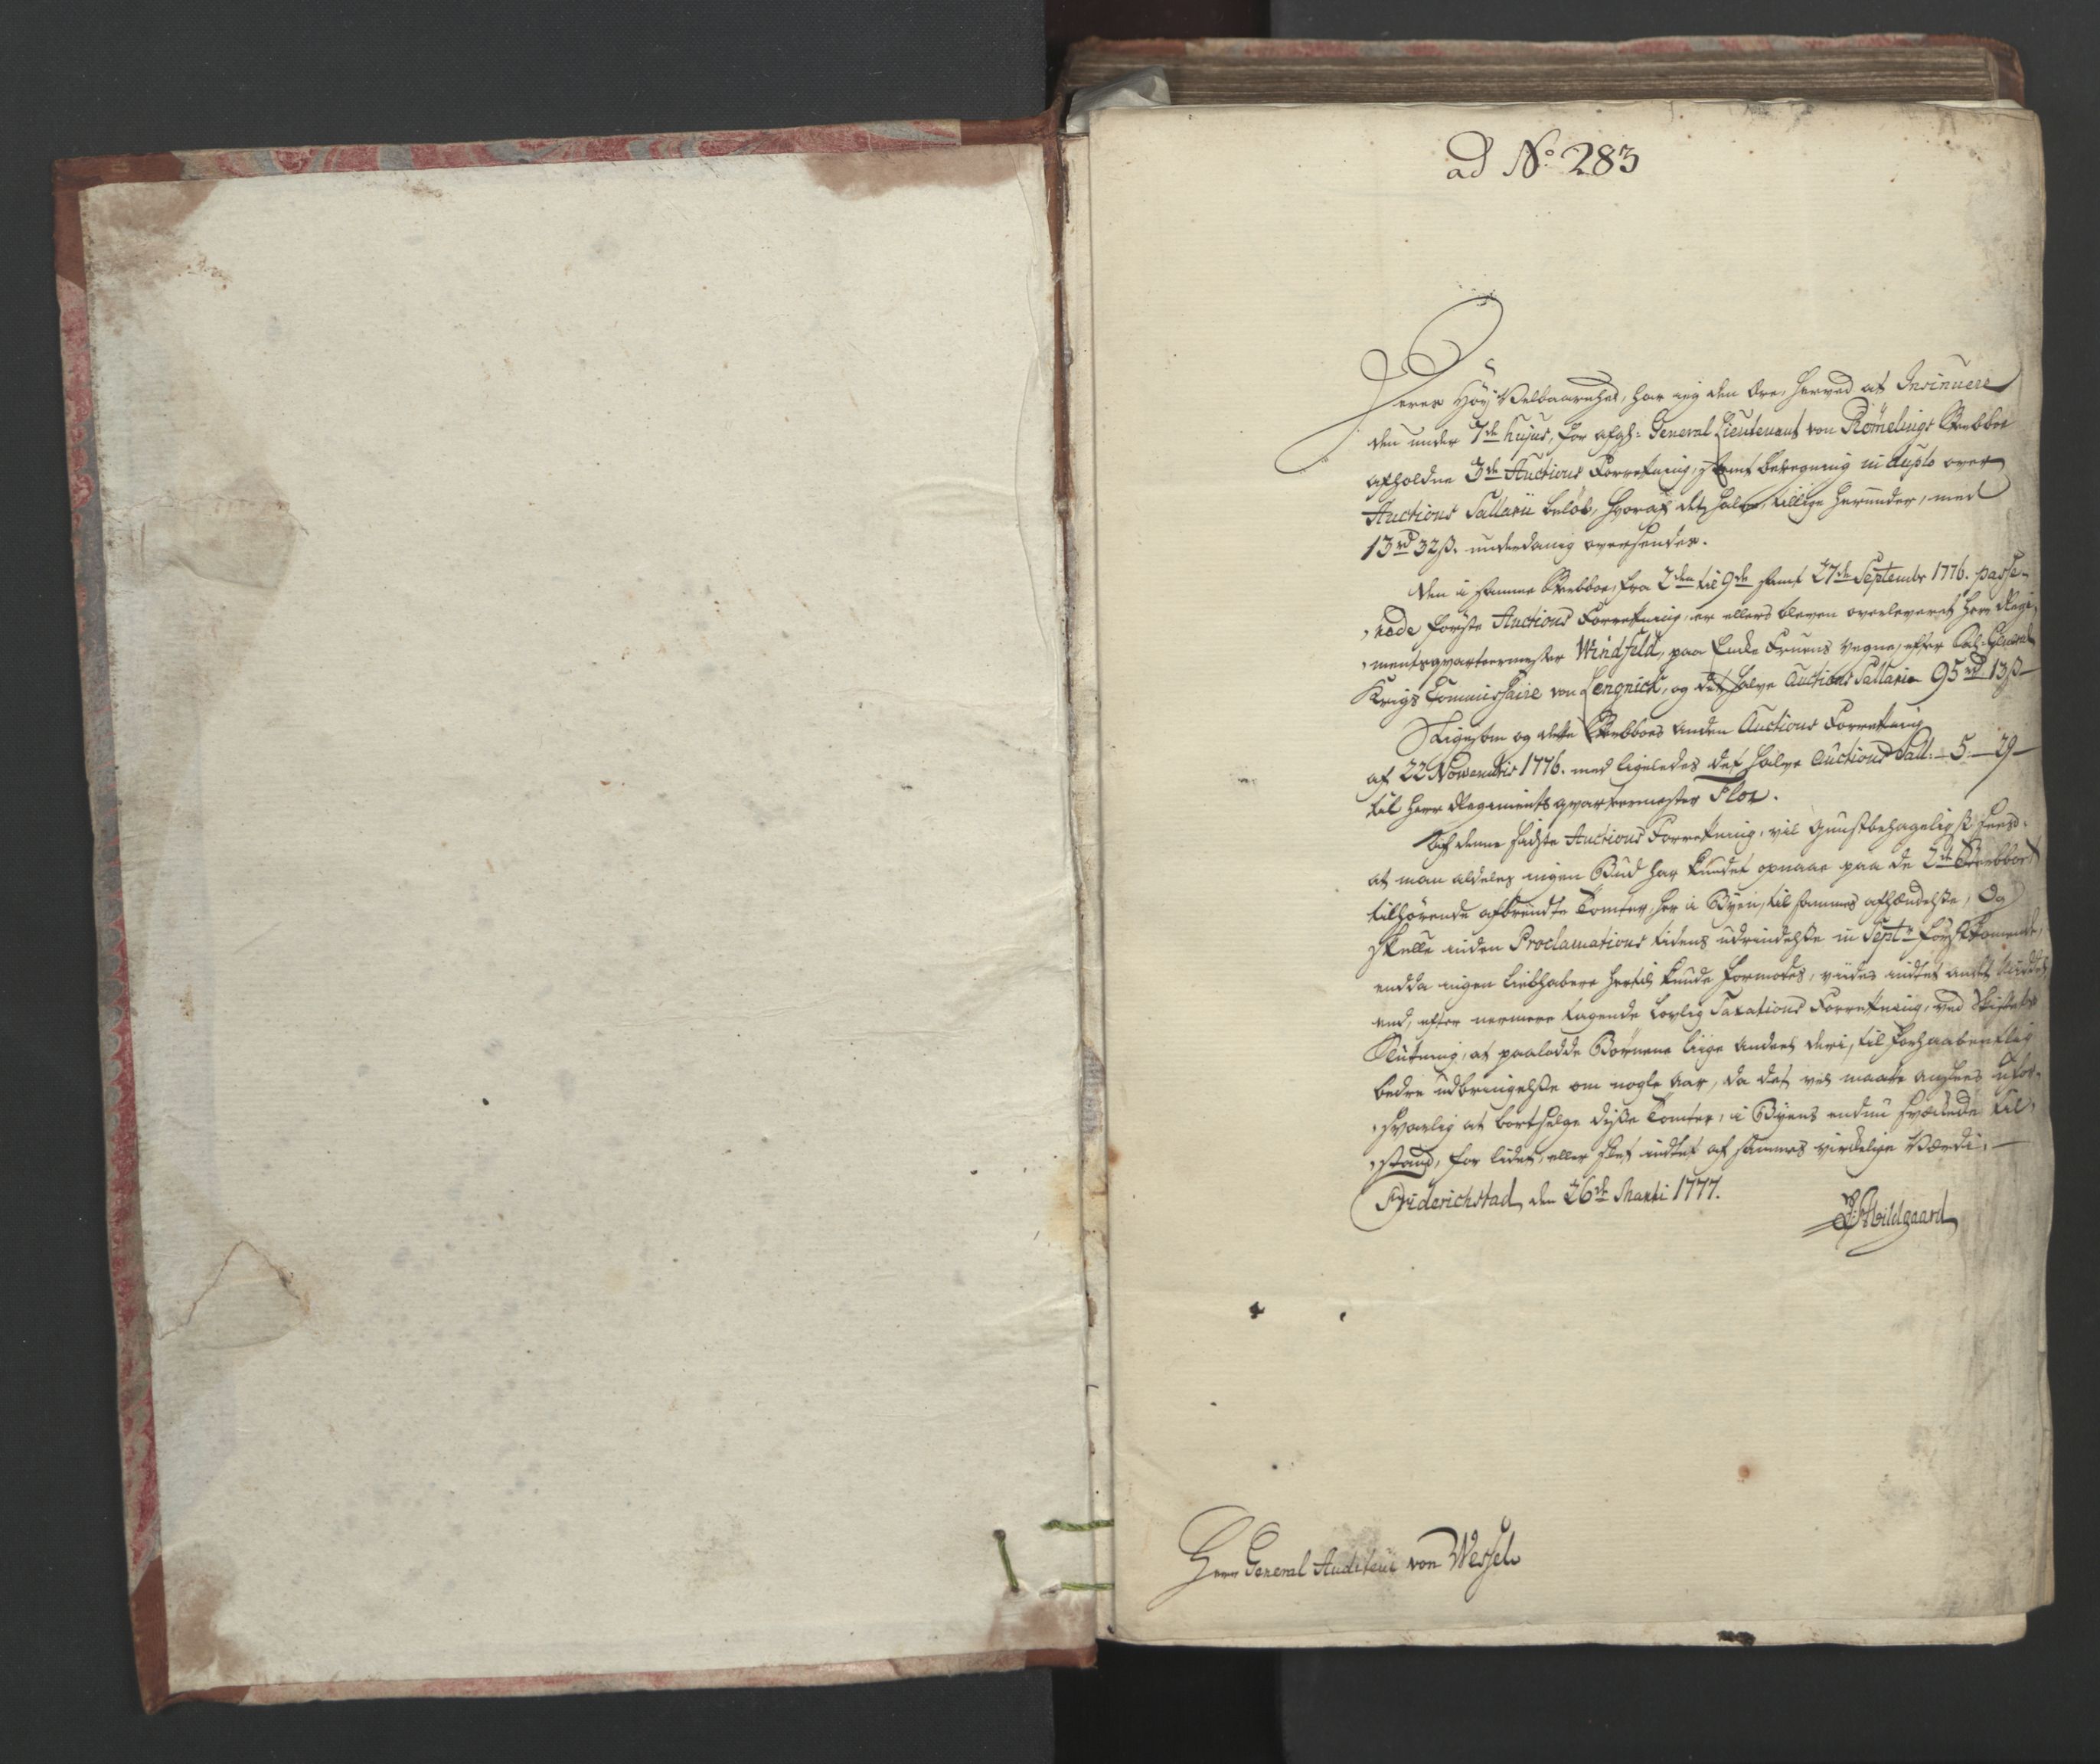 ad No: 283
Deres Høy Velbaarenhed, har jeg den Ære, herved at Insinuere
den under 7de hujus, for afg: General Lieutenant von Rømelings Sterboe
afholdne 3de Auctions Forretning, samt beregning in duplo over
Auctions Sallarii beløb, hvoraf det halve, tillige herunder, med
13rd 32ß. underdanig oversendes.
Den i samme Sterboe, fra 2den til 9de samt 27de Septembr 1776. passe-
,rede første Auctions Forretning, er ellers bleven overleveret Herr Regi-
,mentsqvarteermester Windfeld, paa Encke Fruens vegne, efter Sal: General
Krigs Commissaire von Lengnick, og det halve Auctions Sallario 95rd 13ß
Ligesom og dette Sterboes anden Auctions Forretning
af 22 Novembris 1776. med ligeledes det halve Auctions Sall: 5 - 29 -
til Herr Regimentsqvarteermester Flor.
Af denne sidste Auctions Forretning, vil gunstbehageligst sees,
at man aldeles ingen Bud har kundet opnaae paa de 2de Sterboet
tilhørende afbrendte Tomter, her i Byen, til sammes afhændelse, Og
skulle inden Proclamations tidens udrindelse in Septr førstkomende,
endda ingen liebhabere hertil kunde formodes, viides intet andet Middel
end, efter nermere tagende lovlig Taxations Forretning, ved Skiftets
Slutning, at paalodde Børnene lige Andeel deri, til forhaabentlig
bedre udbringelse om nogle Aar, da det vil maatte ansees ufor-
,svarlig at bortselge disse Tomter, i Byens endnu svækkede Til-
,stand, for lidet, eller slet intet af sammes virkelige Værdi. -
Friderichstad, den 26de Martii 1777.
Abildgaard
Herr General Auditeur von Wessel